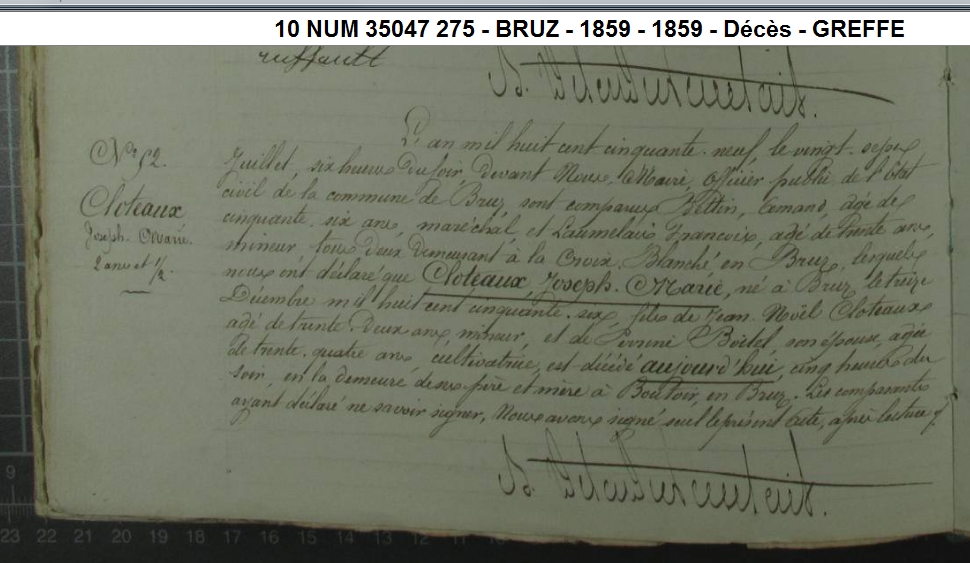 10 NUM 35047 275 - BRUZ - 1859 - 1859 - Décès - GREFFE
ruffault
Nº 52.
Cloteaux
Joseph-Marie.
2 ans et 1/2.
L'an mil huit cent cinquante-neuf, le vingt-sept
Juillet, six heures du soir, devant Nous, Maire, officier public de l'état
civil de la commune de Bruz, sont comparus Bettin, Armand, âgé de
cinquante-six ans, maréchal, et Laumelais François, agé de trente ans,
mineur, tous deux demeurant à la Croix-Blanche, en Bruz, lesquels
nous ont déclaré que Cloteaux, Joseph-Marie, né à Bruz, le treize
Décembre mil huit cent cinquante-six, fils de Jean-Noël Cloteaux
agé de trente-deux ans, mineur, et de Perrine Boitel, son épouse, agée
de trente-quatre ans, cultivatrice, est décédé aujourd'hui, cinq heures du
soir, en la demeure de ses père et mère à Boutoir, en Bruz. Les comparants
ayant déclaré ne savoir signer, Nous avons signé seul le présent acte, après lecture